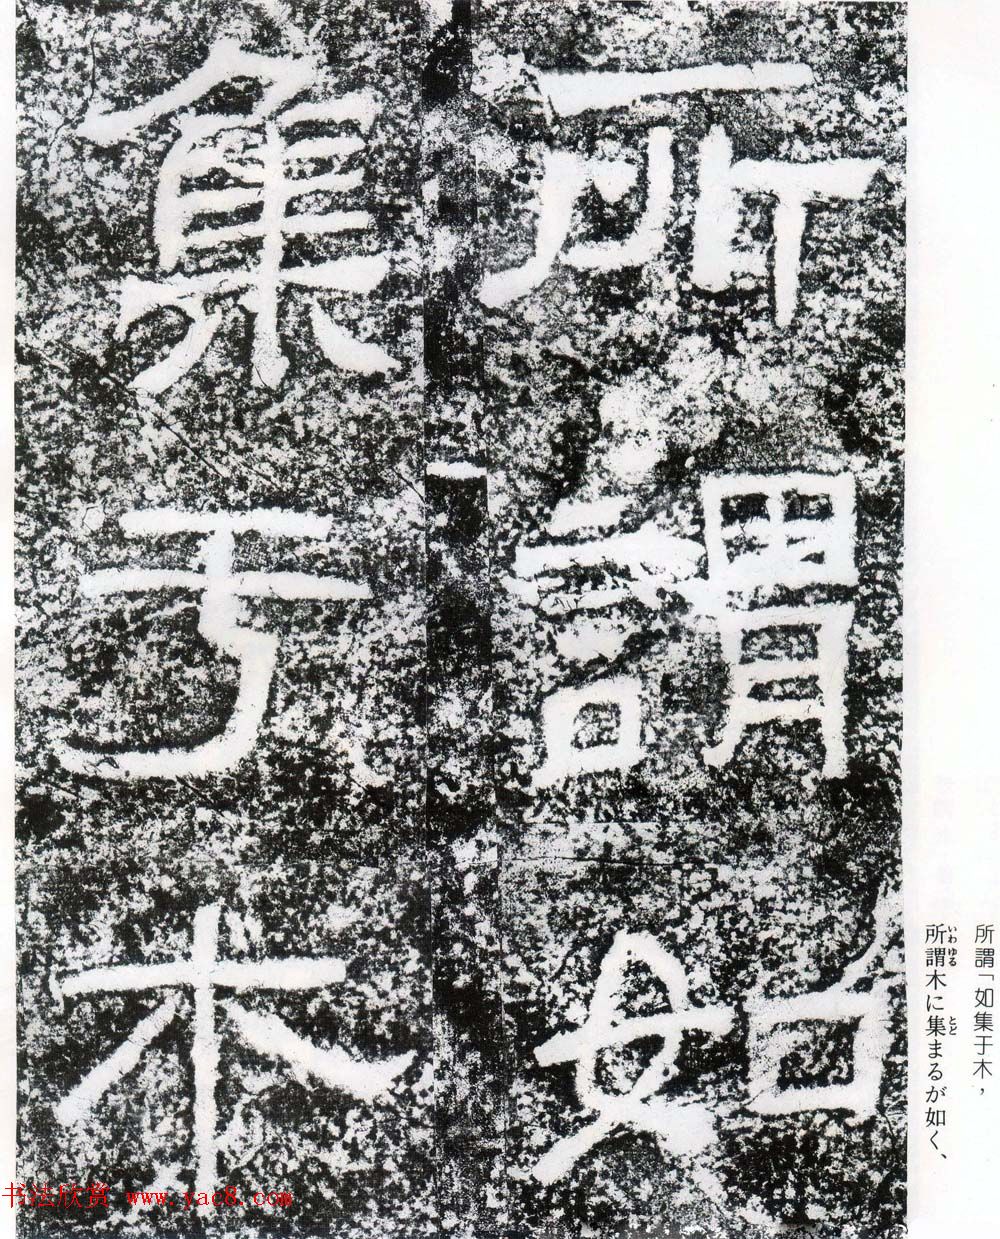 所謂如
集于木
所謂「如集于木，
所謂木に集まるが如く、
いわゆる
とど
书法欣赏 www.yac8.com